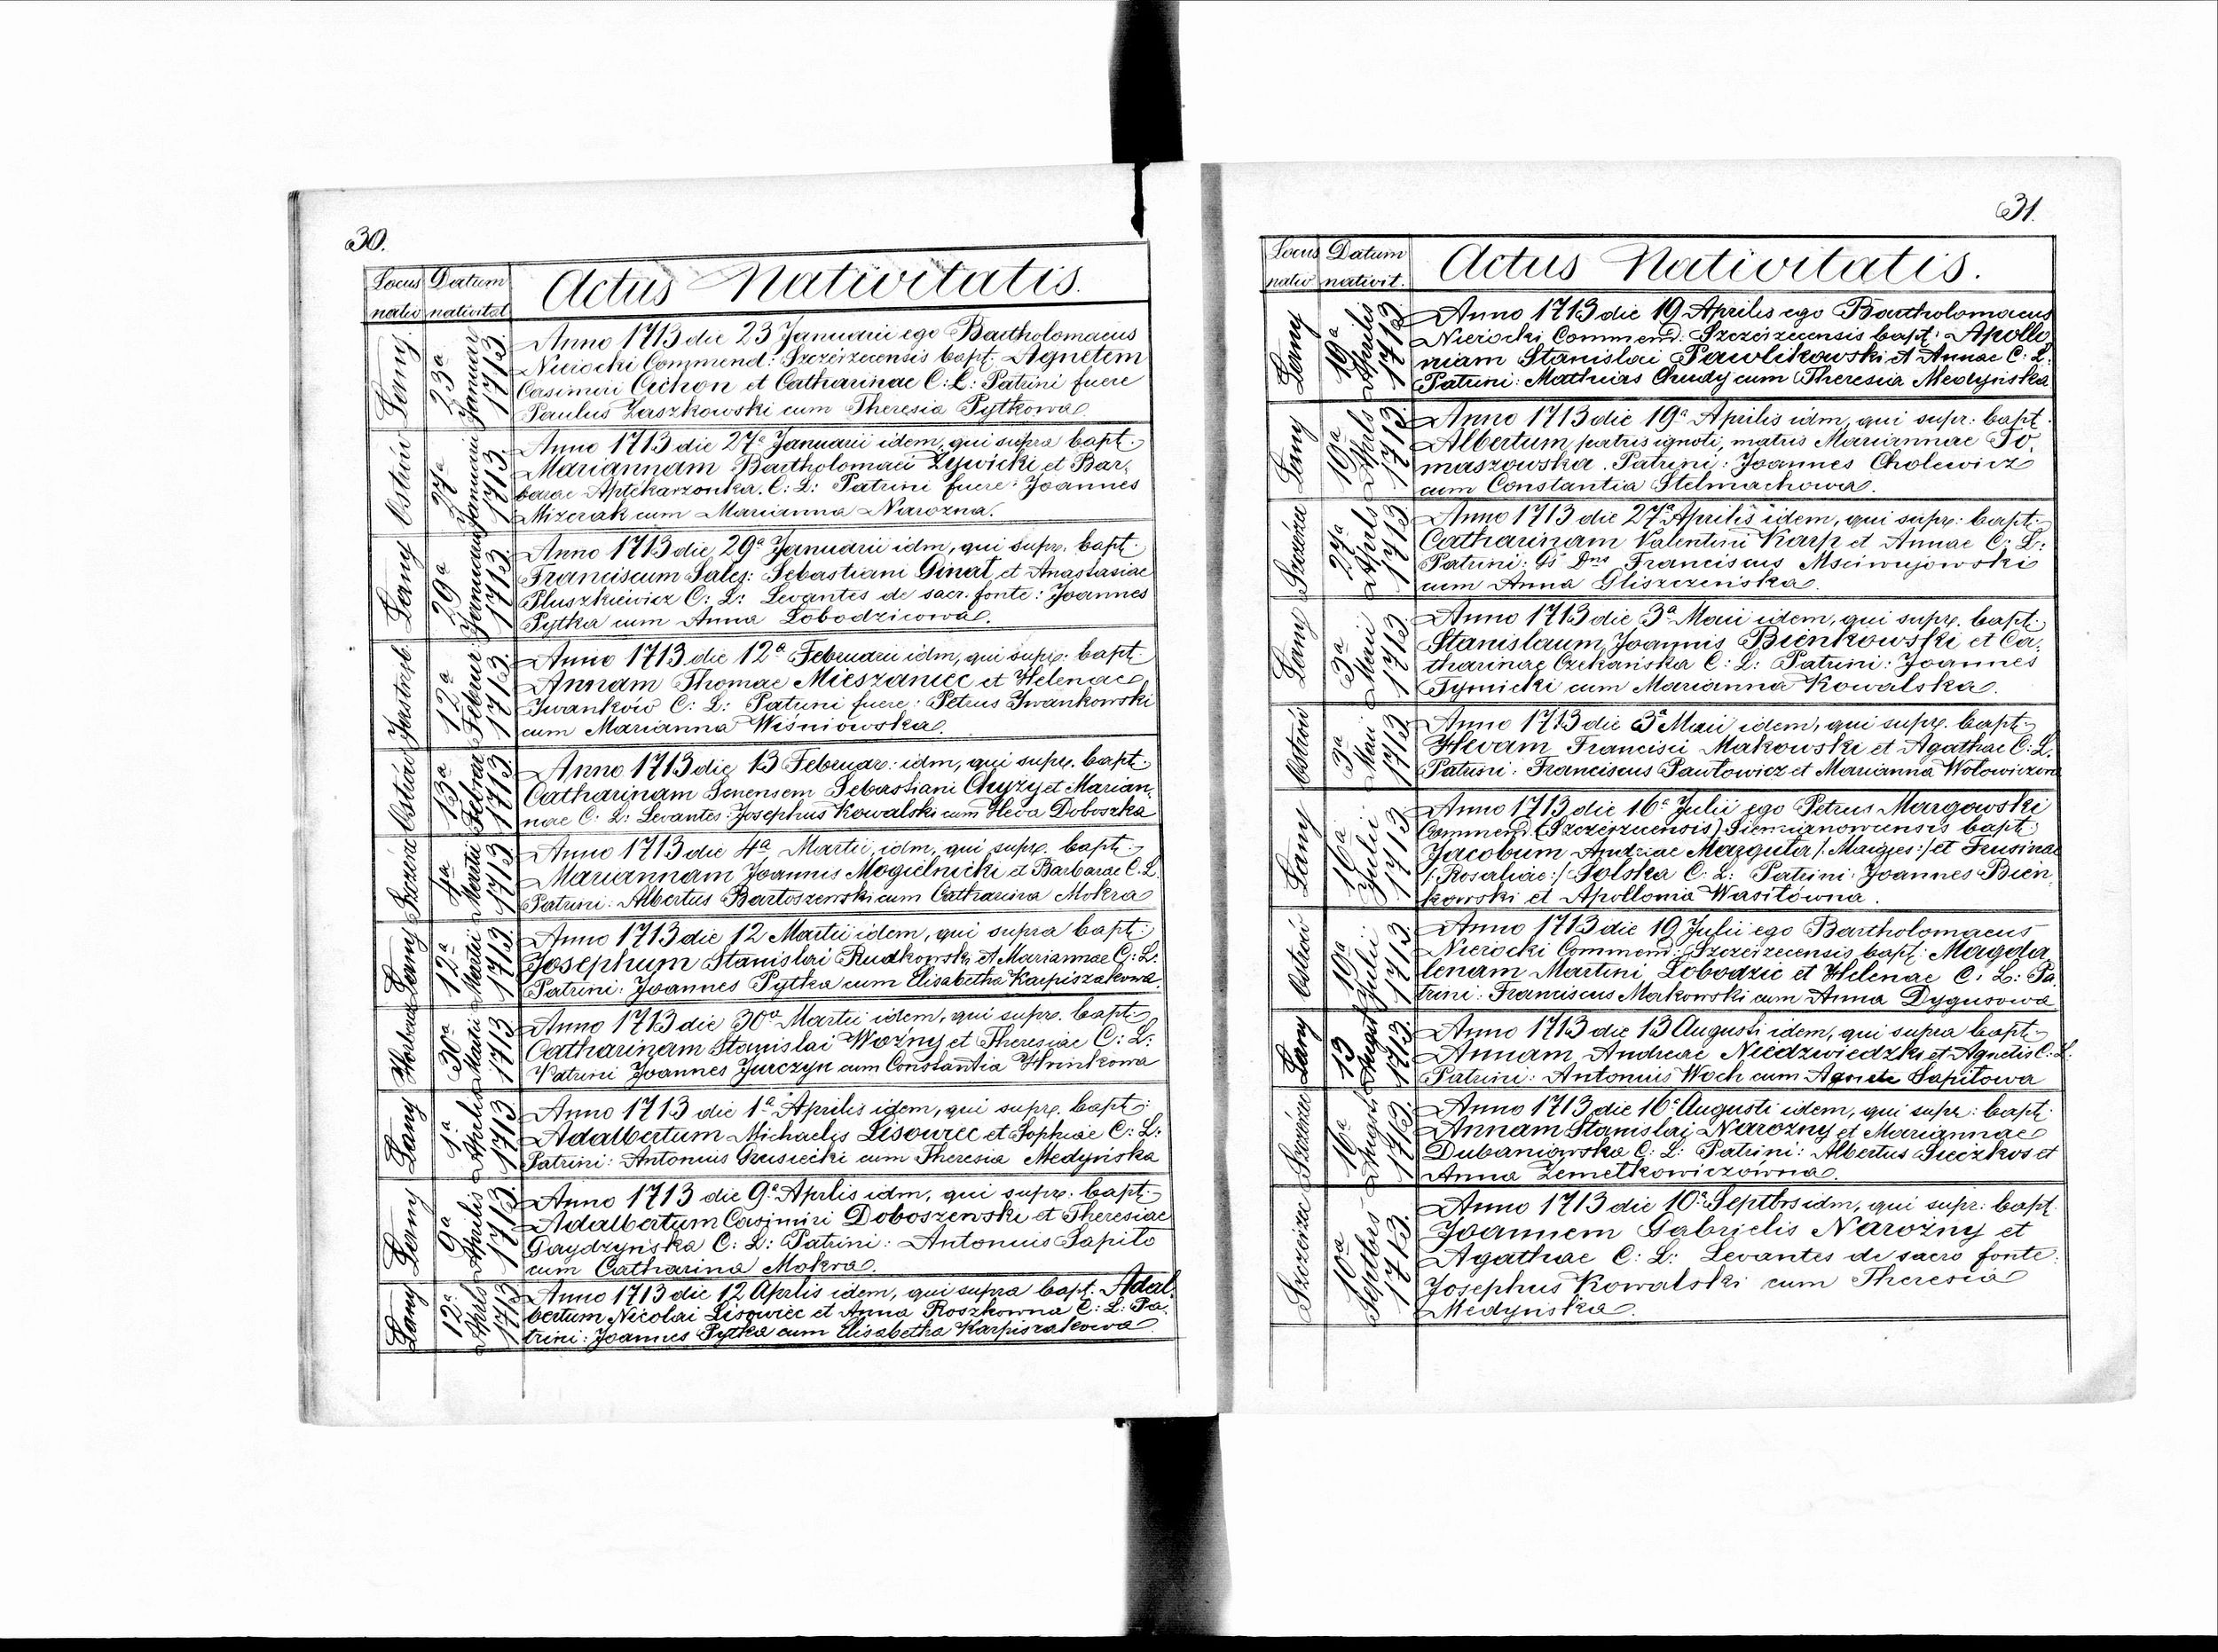 30.
Locus nativ
Datum nativitat
Actus Nativitatis.
Łany
23a Januar 1713.
Anno 1713 die 23 Januarii ego Bartholomaeus
Nieriocki Commend: Szczerzecensis bapt: Agnetem
Casimiri Cichon et Catharinae C: L: Patrini fuere
Paulus Zaszkowski cum Theresia Pytkowa.
Ostrów
27a Januarii 1713.
Anno 1713 die 27a Januarii idem, qui supra bapt:
Mariannam Bartholomaei Żywicki et Bar,
barae Aptekarzonka. C: L: Patrini fuere: Joannes
Mizerak cum Marianna Narozna.
Łany
29a Januarii 1713.
Anno 1713 die 29a Januarii idm, qui supr. bapt:
Franciscum Sales: Sebastiani Ginat et Anastasiae
Pluszkiewicz C: L: Levantes de sacr. fonte: Joannes
Pytka cum Anna Łobodzicowa.
Jastrzęb
12a Februar 1713.
Anno 1713 die 12a Februarii idm, qui supr: bapt:
Annam Thomae Mieszaniec et Helenae
Iwanków C: L: Patrini fuere: Petrus Iwankowski
cum Marianna Wiśniowska.
Ostrów
13a Februar 1713
Anno 1713 die 13 Februar: idm, qui supr. bapt:
Catharinam Senensem Sebastiani Chyży et Marian,
nae C: L: Levantes: Josephus Kowalski cum Heva Doboszka
Szczerz
4a Martii 1713
Anno 1713 die 4a Martii idm, qui supr. bapt:
Mariannam Joannis Mogielnicki et Barbarae C: L.
Patrini: Albertus Bartoszewski cum Catharina Mokra
Łany
12a Martii 1713
Anno 1713 die 12 Martii idem, qui supra bapt:
Josephum Stanislai Rudkowski et Mariannae C: L:
Patrini: Joannes Pytka cum Elisabetha Karpiszakowa.
30a Martii 1713
Anno 1713 die 30a Martii idem, qui supr. bapt:
Catharinam Stanislai Woźny et Theresiae C: L:
Patrini Joannes Jurczyn cum Constantia Hrinkowa
Łany
1a Aprilis 1713
Anno 1713 die 1a Aprilis idem, qui supr. bapt:
Adalbertum Michaelis Lisowiec et Sophiae C: L:
Patrini: Antonius Grusiecki cum Theresia Medyńska
Łany
9a Aprilis 1713.
Anno 1713 die 9a Aprlis idm, qui supr: bapt:
Adalbertum Casimiri Doboszewski et Theresiae
Daydzyńska C: L: Patrini: Antonius Sapito
cum Catharina Mokra.
Łany
12a Aprlis 1713
Anno 1713 die 12 Aprlis idem, qui supra bapt. Adal,
bertum Nicolai Lisowiec et Anna Roszkowna C: L: Pa,
trini: Joannes Pytka cum Elisabetha Karpiszakowa
31.
Locus nativ
Datum nativit.
Actus Nativitatis.
Łany
19a Aprilis 1713
Anno 1713 die 19 Aprilis ego Bartholomaeus
Nieriocki Commend: Szczerzecensis bapt: Apollo
niam Stanislai Pawlikowski et Annae C: L:
Patrini: Mathias Chudy cum Theresia Medyńska
Łany
19a Aprls 1713.
Anno 1713 die 19a Aprilis idm, qui supr: bapt.
Albertum patris ignoti, matris Mariannae To,
maszowska. Patrini: Joannes Cholewicz
cum Constantia Stelmachowa.
Szczérze
27a Aprls 1713
Anno 1713 die 27a Aprilis idem, qui supr: bapt:
Catharinam Valentini Karp et Annae C: L:
Patrini: Gs Dns Franciscus Msciwujowski
cum Anna Gliszczeńska.
Łany
3a Maii 1713
Anno 1713 die 3a Maii idem, qui supr. bapt:
Stanislaum Joannis Bieńkowski et Ca,
tharinae Czekańska C: L: Patrini: Joannes
Tymicki cum Marianna Kowalska.
Ostrów
3a Maii 1713
Anno 1713 die 3a Maii idem, qui supr. bapt:
Hevam Francisci Makowski et Agathae C: L.
Patrini: Franciscus Pawłowicz et Marianna Wołowiczowa
Łany
16a Julii 1713
Anno 1713 die 16a Julii ego Petrus Margowski
Commend. (Szczerzecensis) Siemianowcensis bapt:
Jacobum Andreae Mazguta /: Maizjes :/ et Frusinae
/: Rosaliae :/ Solska C: L: Patrini: Joannes Bień,
kowski et Apollonia Wasilówna.
Ostrów
19a Julii 1713
Anno 1713 die 19 Julii ego Bartholomaeus
Nieriocki Commend: Szczerzecensis bapt: Magda,
lenam Martini Łobodzic et Helenae C: L: Pa
trini: Franciscus Makowski cum Anna Dygusowa
Łany
13 August 1713.
Anno 1713 die 13 Augusti idem, qui supra bapt:
Annam Andreae Niedzwiedzki et Agnetis C: L:
Patrini: Antonius Woch cum Agnete Sapitowa
Szczérze
16a August 1713.
Anno 1713 die 16a Augusti idem, qui supr: bapt:
Annam Stanislai Narożny et Mariannae
Dubaniowska C: L: Patrini: Albertus Sieczkos et
Anna Zemełkowiczówna.
Szczerze
10a Septbris 1713.
Anno 1713 die 10a Septbrs idm, qui supr: bapt.
Joannem Gabrielis Narożny et
Agathae C: L: Levantes de sacro fonte:
Josephus Kowalski cum Theresia
Medyńska.